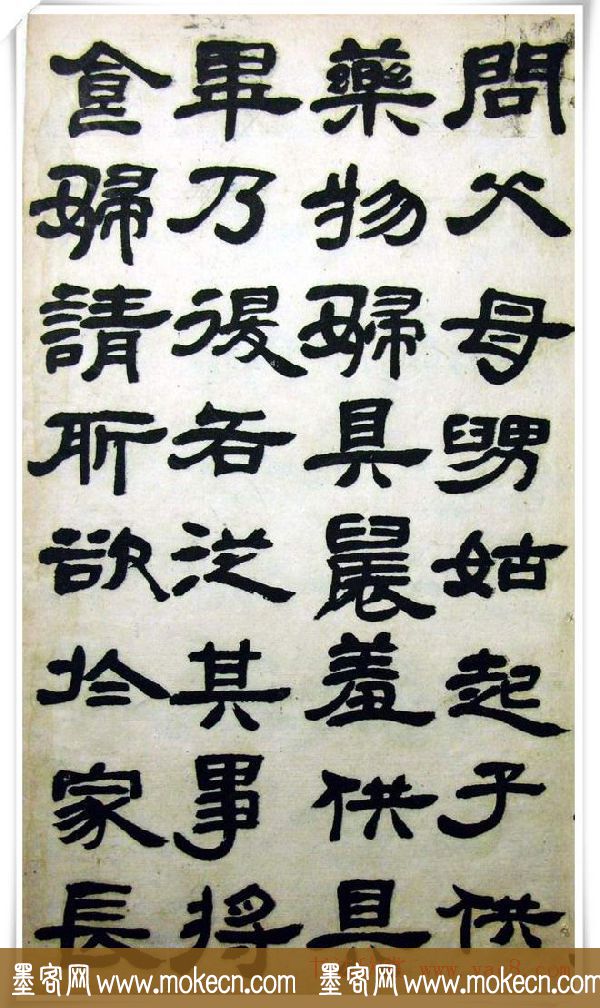 問父母舅姑起子供
藥物婦具晨羞供具
畢乃復各從其事將
食婦請所欲於家長
墨客网 www.mokecn.com 墨客网 www.mokecn.com